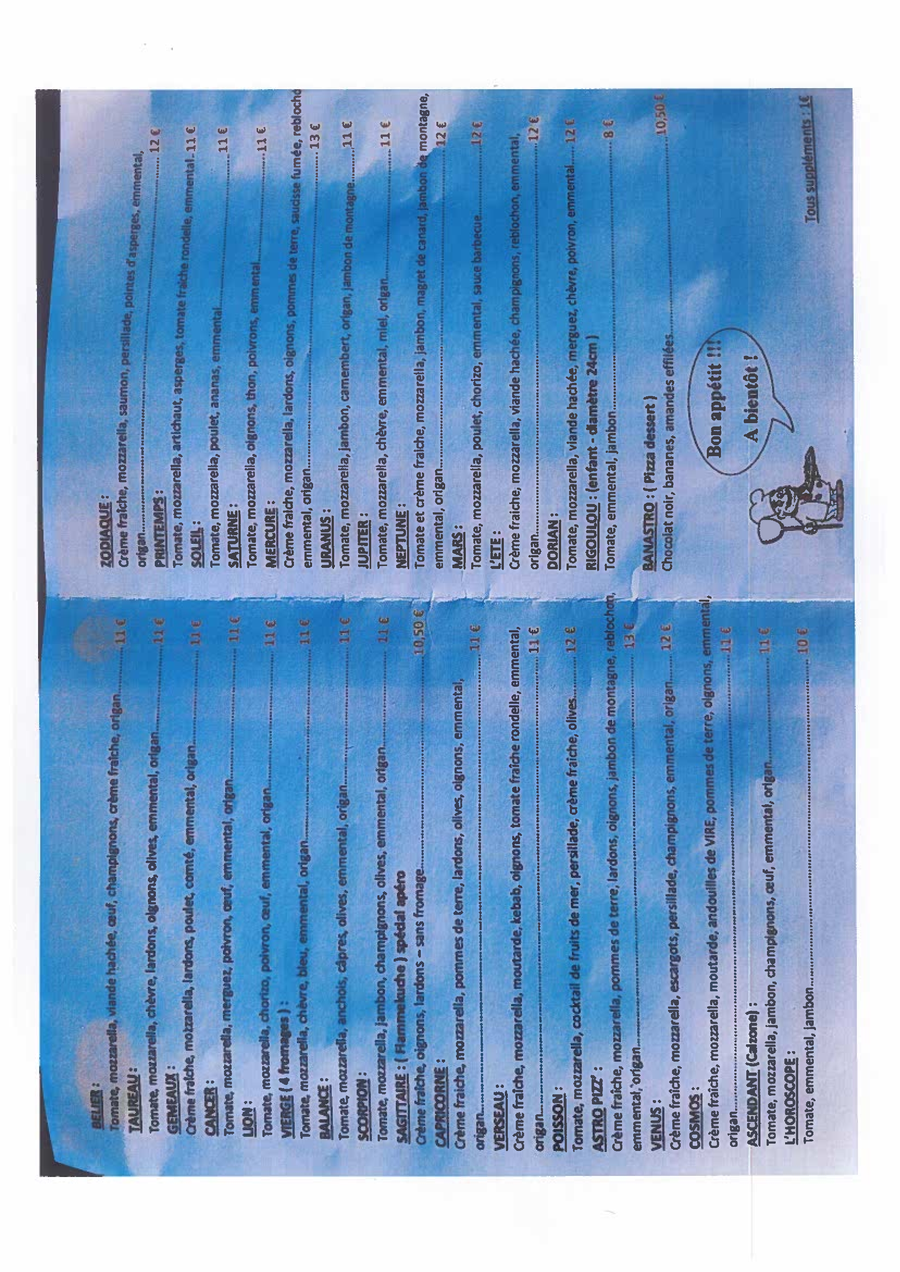 BELIER :
Tomate, mozzarella, viande hachée, œuf, champignons, crème fraîche, origan 11 €
TAUREAU :
Tomate, mozzarella, chèvre, lardons, oignons, olives, emmental, origan 11 €
GEMEAUX :
Crème fraîche, mozzarella, lardons, poulet, comté, emmental, origan 11 €
CANCER :
Tomate, mozzarella, merguez, poivron, œuf, emmental, origan 11 €
LION :
Tomate, mozzarella, chorizo, poivron, œuf, emmental, origan 11 €
VIERGE ( 4 fromages ) :
Tomate, mozzarella, chèvre, bleu, emmental, origan 11 €
BALANCE :
Tomate, mozzarella, anchois, câpres, olives, emmental, origan 11 €
SCORPION :
Tomate, mozzarella, jambon, champignons, olives, emmental, origan 11 €
SAGITTAIRE : ( Flammekuche ) spécial apéro
Crème fraîche, oignons, lardons – sans fromage 10,50 €
CAPRICORNE :
Crème fraîche, mozzarella, pommes de terre, lardons, olives, oignons, emmental,
origan 11 €
VERSEAU :
Crème fraîche, mozzarella, moutarde, kebab, oignons, tomate fraîche rondelle, emmental,
origan 11 €
POISSON :
Tomate, mozzarella, cocktail de fruits de mer, persillade, crème fraiche, olives 12 €
ASTRO PIZZ' :
Crème fraîche, mozzarella, pommes de terre, lardons, oignons, jambon de montagne, reblochon,
emmental, origan 13 €
VENUS :
Crème fraîche, mozzarella, escargots, persillade, champignons, emmental, origan 12 €
COSMOS :
Crème fraîche, mozzarella, moutarde, andouilles de VIRE, pommes de terre, oignons, emmental,
origan 11 €
ASCENDANT (Calzone) :
Tomate, mozzarella, jambon, champignons, œuf, emmental, origan 11 €
L'HOROSCOPE :
Tomate, emmental, jambon 10 €
ZODIAQUE :
Crème fraîche, mozzarella, saumon, persillade, pointes d'asperges, emmental,
origan 12 €
PRINTEMPS :
Tomate, mozzarella, artichaut, asperges, tomate fraîche rondelle, emmental 11 €
SOLEIL :
Tomate, mozzarella, poulet, ananas, emmental 11 €
SATURNE :
Tomate, mozzarella, oignons, thon, poivrons, emmental 11 €
MERCURE :
Crème fraîche, mozzarella, lardons, oignons, pommes de terre, saucisse fumée, reblocho
emmental, origan 13 €
URANUS :
Tomate, mozzarella, jambon, camembert, origan, jambon de montagne 11 €
JUPITER :
Tomate, mozzarella, chèvre, emmental, miel, origan 11 €
NEPTUNE :
Tomate et crème fraiche, mozzarella, jambon, magret de canard, jambon de montagne,
emmental, origan 12 €
MARS :
Tomate, mozzarella, poulet, chorizo, emmental, sauce barbecue 12 €
L'ETE :
Crème fraiche, mozzarella, viande hachée, champignons, reblochon, emmental,
origan 12 €
DORIAN :
Tomate, mozzarella, viande hachée, merguez, chèvre, poivron, emmental 12 €
RIGOULOU : (enfant - diamètre 24cm )
Tomate, emmental, jambon 8 €
BANASTRO : ( Pizza dessert )
Chocolat noir, bananes, amandes effilées 10,50 €
Bon appétit !!!
A bientôt !
Tous suppléments : 1€